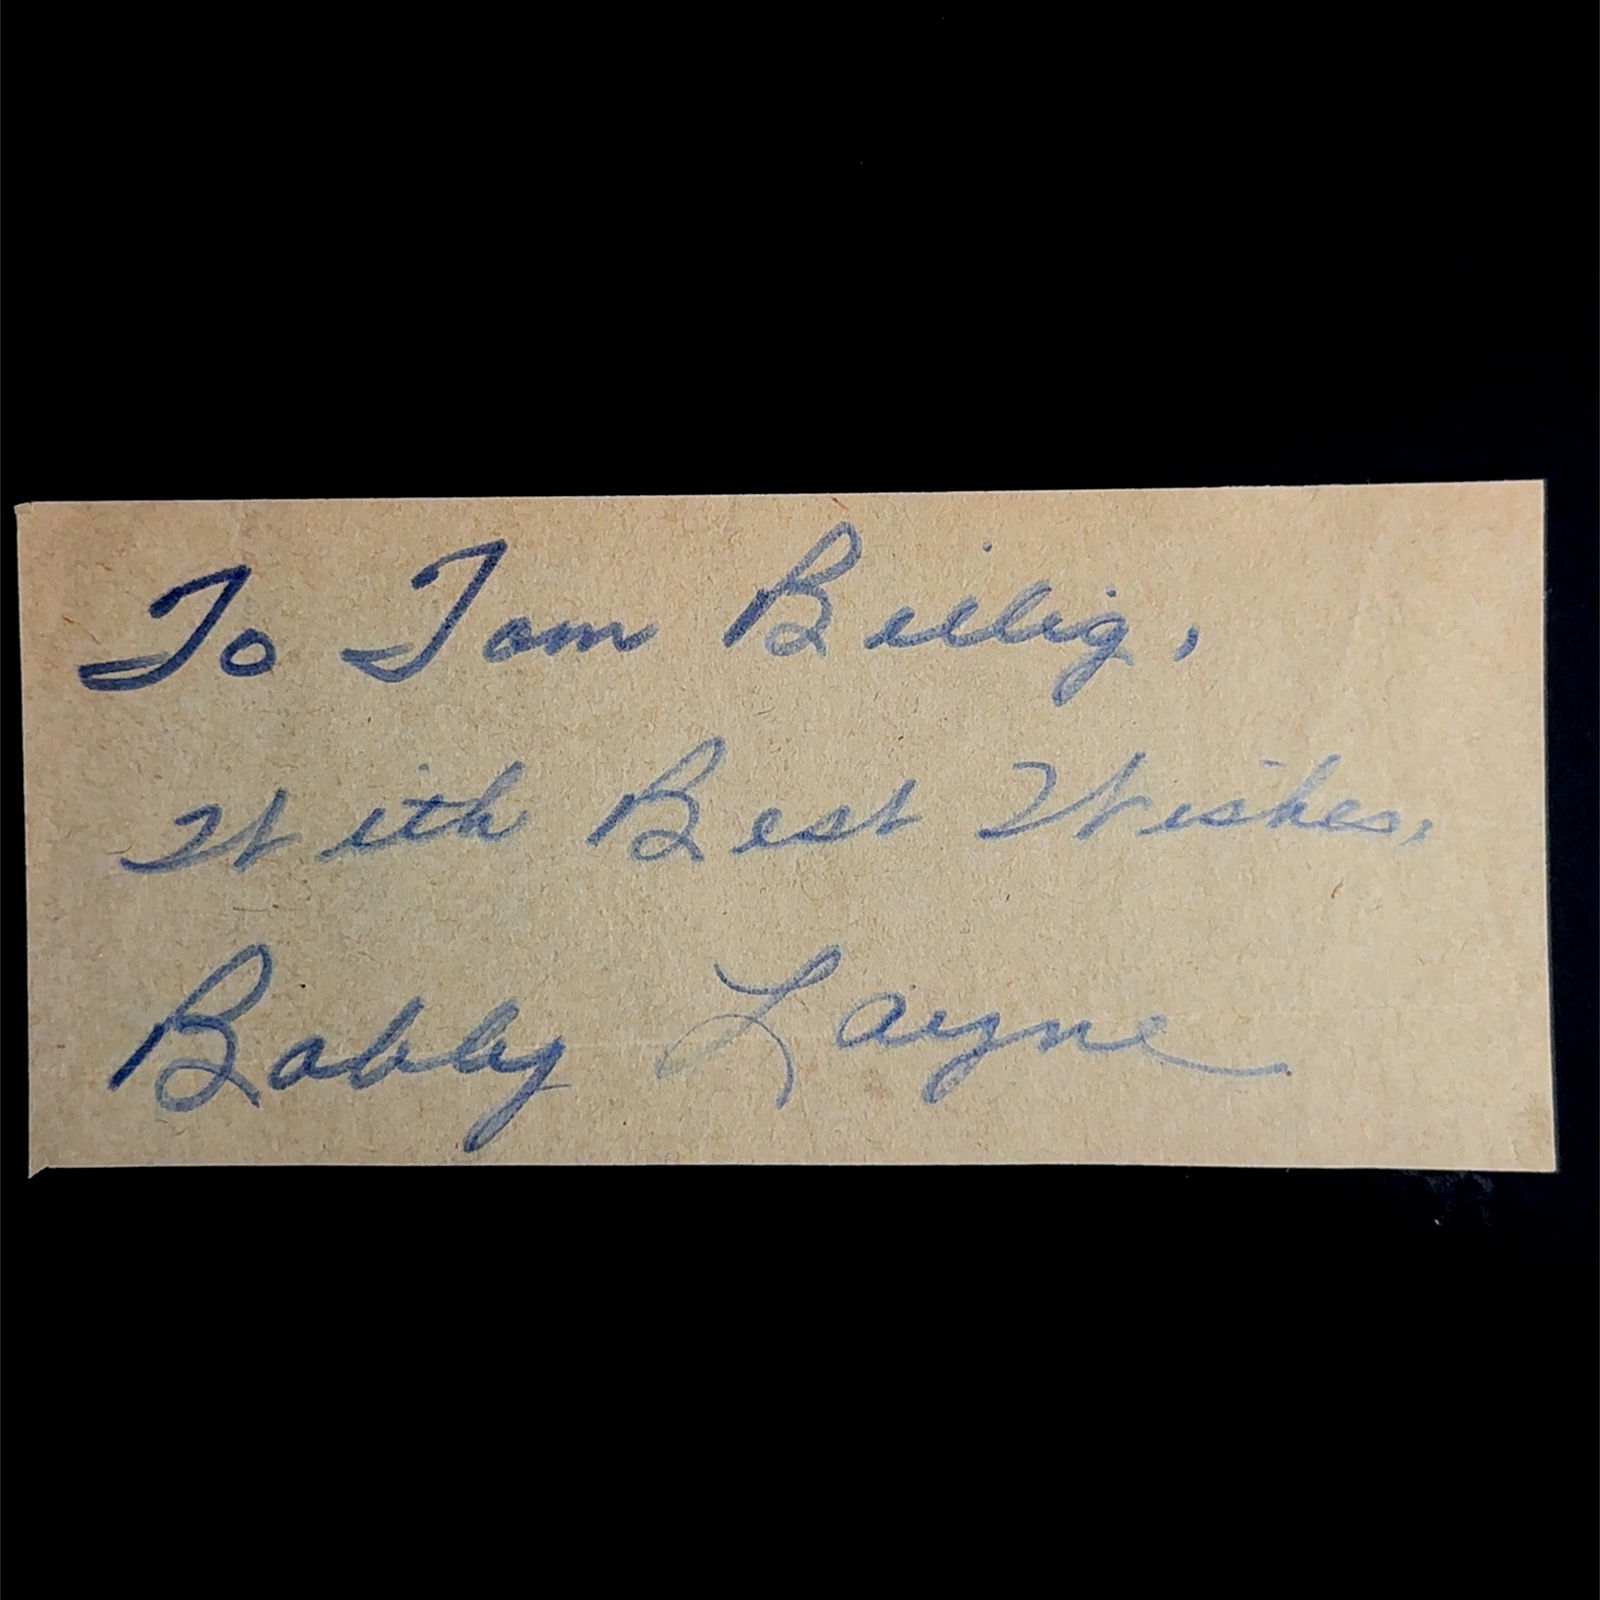 To Tom Billig,
With Best Wishes,
Bobby Layne